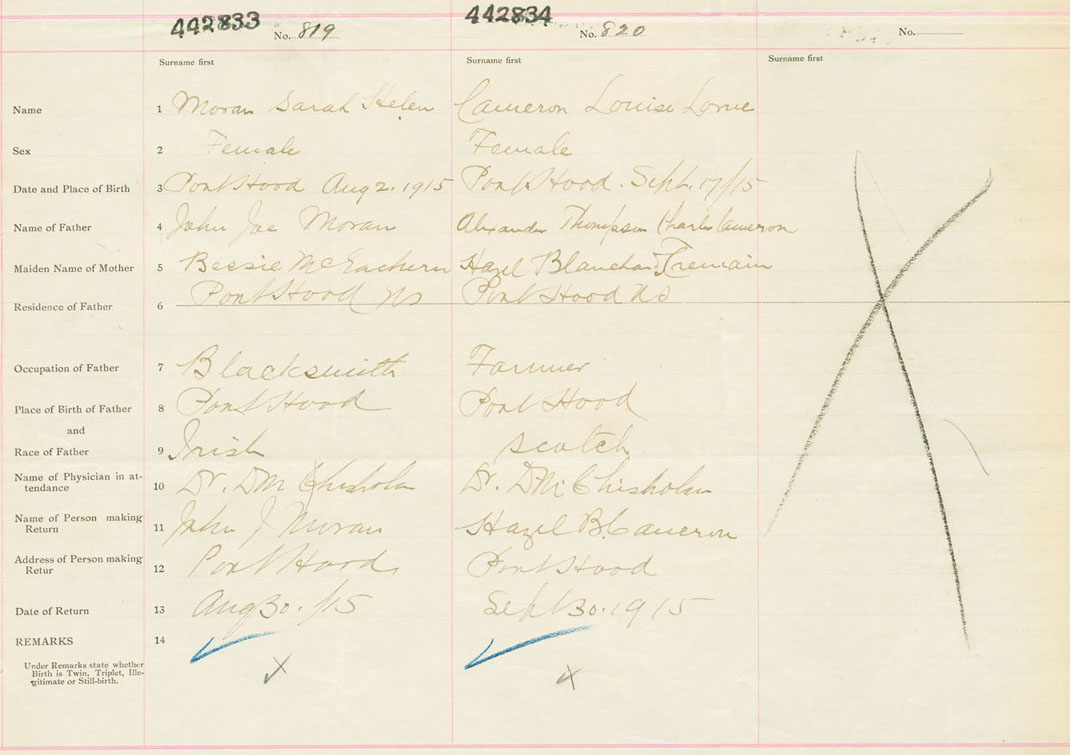 442833 No. 819 442834 No. 820 No.
Surname first Surname first Surname first
Name 1 Moran Sarah Helen Cameron Louise Lorne
Sex 2 Female Female
Date and Place of Birth 3 Port Hood Aug 2. 1915 Port Hood. Sept. 17/15
Name of Father 4 John Joe Moran Alexander Thompson Charles Cameron
Maiden Name of Mother 5 Bessie McEachern Hazel Blanchard Tremain
Residence of Father 6 Port Hood NS Port Hood NS
Occupation of Father 7 Blacksmith Farmer
Place of Birth of Father 8 Port Hood Port Hood
and
Race of Father 9 Irish Scotch
Name of Physician in at-
tendance 10 Dr. D Mc Chisholm Dr. D Mc Chisholm
Name of Person making
Return 11 John J Moran Hazel B Cameron
Address of Person making
Retur 12 Port Hood Port Hood
Date of Return 13 Aug 30. /15 Sept 30. 1915
REMARKS 14
Under Remarks state whether
Birth is Twin, Triplet, Ille-
gitimate or Still-birth.
x x